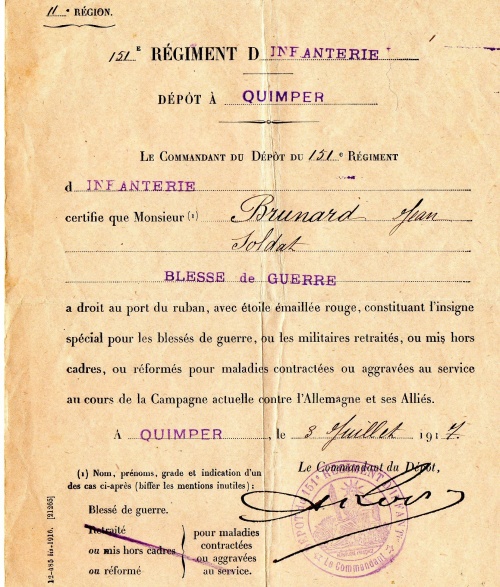 11e RÉGION.
151E RÉGIMENT D INFANTERIE
DÉPÔT À QUIMPER
LE COMMANDANT DU DÉPÔT DU 151e RÉGIMENT
d INFANTERIE
certifie que Monsieur (1) Brunard Jean
Soldat
BLESSE de GUERRE
a droit au port du ruban, avec étoile émaillée rouge, constituant l'insigne
spécial pour les blessés de guerre, ou les militaires retraités, ou mis hors
cadres, ou réformés pour maladies contractées ou aggravées au service
au cours de la Campagne actuelle contre l'Allemagne et ses Alliés.
A QUIMPER, le 3 Juillet 1917.
Le Commandant du Dépôt,
(1) Nom, prénoms, grade et indication d'un
des cas ci-après (biffer les mentions inutiles) :
Blessé de guerre.
Retraité
ou mis hors cadres
ou réformé
pour maladies
contractées
ou aggravées
au service.
DÉPOT DU 151e RÉGIMENT D'INFANTIE
Le Commandant
12-985 bis-1916. [21265]